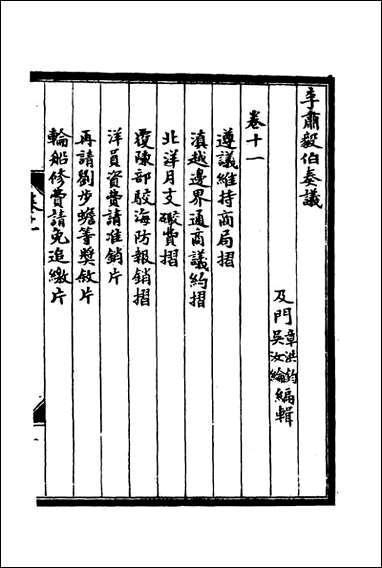 李肅毅伯奏議
及門章洪鈞吳汝綸編輯
卷十一
遵議維持商局摺
滇越邊界通商議約摺
北洋月支礮費摺
覆陳部駮海防報銷摺
洋員資費請准銷片
再請劉步蟾等獎敘片
輪船修費請免追繳片